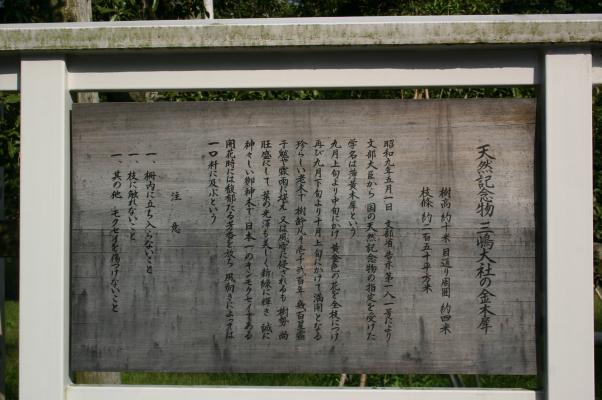 天然記念物 三嶋大社の金木犀
樹高 約十米 目通り周囲 約四米
枝條 約二百五十平方米
昭和九年五月一日 文部省告示第一八一号により
文部大臣から 国の天然記念物の指定を受けた
学名は薄黄木犀という
九月上旬より中旬にかけ 黄金色の花を全枝につけ
再び九月下旬より十月上旬にかけて満開となる
珍らしい老木で 樹齢凡そ千二百年 幾百星霜
干魃や霖雨に堪え 又は風害に侵されるも 樹勢 尚
旺盛にして 葉の光澤も美しく新緑に輝き 誠に
神々しい御神木で 日本一のキンモクセイである
開花時には馥郁たる芳香を放ち 風向きによっては
一〇粁に及ぶという
注 意
一、柵内に立ち入らないこと
一、枝に触れないこと
一、其の他 モクセイを傷つけないこと